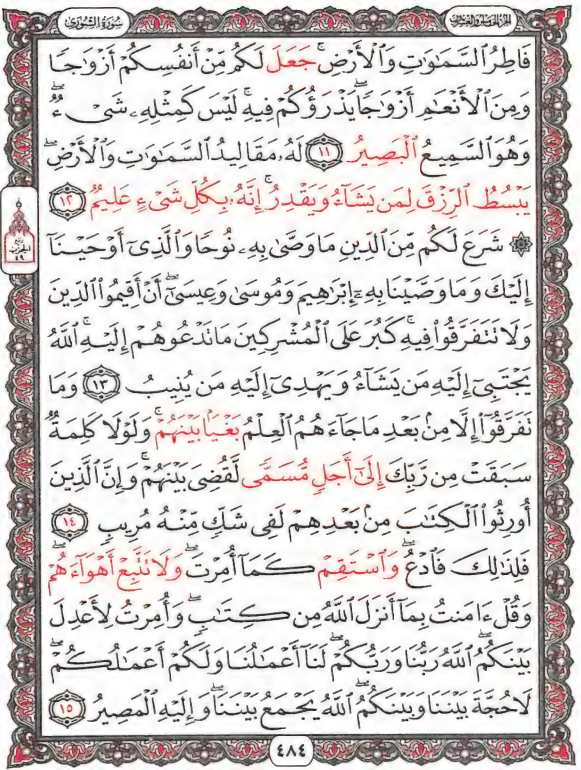 سُورَةُ الشُّورَىٰ
فَاطِرُ ٱلسَّمَـٰوَٰتِ وَٱلْأَرْضِ ۚ جَعَلَ لَكُم مِّنْ أَنفُسِكُمْ أَزْوَٰجًا
وَمِنَ ٱلْأَنْعَـٰمِ أَزْوَٰجًا ۖ يَذْرَؤُكُمْ فِيهِ ۚ لَيْسَ كَمِثْلِهِۦ شَىْءٌ ۖ
وَهُوَ ٱلسَّمِيعُ ٱلْبَصِيرُ ١١ لَهُۥ مَقَالِيدُ ٱلسَّمَـٰوَٰتِ وَٱلْأَرْضِ ۖ
يَبْسُطُ ٱلرِّزْقَ لِمَن يَشَآءُ وَيَقْدِرُ ۚ إِنَّهُۥ بِكُلِّ شَىْءٍ عَلِيمٌ ١٢
۞ شَرَعَ لَكُم مِّنَ ٱلدِّينِ مَا وَصَّىٰ بِهِۦ نُوحًا وَٱلَّذِىٓ أَوْحَيْنَآ
إِلَيْكَ وَمَا وَصَّيْنَا بِهِۦٓ إِبْرَٰهِيمَ وَمُوسَىٰ وَعِيسَىٰٓ ۖ أَنْ أَقِيمُوا۟ ٱلدِّينَ
وَلَا تَتَفَرَّقُوا۟ فِيهِ ۚ كَبُرَ عَلَى ٱلْمُشْرِكِينَ مَا تَدْعُوهُمْ إِلَيْهِ ۚ ٱللَّهُ
يَجْتَبِىٓ إِلَيْهِ مَن يَشَآءُ وَيَهْدِىٓ إِلَيْهِ مَن يُنِيبُ ١٣ وَمَا
تَفَرَّقُوٓا۟ إِلَّا مِنۢ بَعْدِ مَا جَآءَهُمُ ٱلْعِلْمُ بَغْيًۢا بَيْنَهُمْ ۚ وَلَوْلَا كَلِمَةٌ
سَبَقَتْ مِن رَّبِّكَ إِلَىٰٓ أَجَلٍ مُّسَمًّى لَّقُضِىَ بَيْنَهُمْ ۚ وَإِنَّ ٱلَّذِينَ
أُورِثُوا۟ ٱلْكِتَـٰبَ مِنۢ بَعْدِهِمْ لَفِى شَكٍّ مِّنْهُ مُرِيبٍ ١٤
فَلِذَٰلِكَ فَٱدْعُ ۖ وَٱسْتَقِمْ كَمَآ أُمِرْتَ ۖ وَلَا تَتَّبِعْ أَهْوَآءَهُمْ ۖ
وَقُلْ ءَامَنتُ بِمَآ أَنزَلَ ٱللَّهُ مِن كِتَـٰبٍ ۖ وَأُمِرْتُ لِأَعْدِلَ
بَيْنَكُمُ ۖ ٱللَّهُ رَبُّنَا وَرَبُّكُمْ ۖ لَنَآ أَعْمَـٰلُنَا وَلَكُمْ أَعْمَـٰلُكُمْ ۖ
لَا حُجَّةَ بَيْنَنَا وَبَيْنَكُمُ ۖ ٱللَّهُ يَجْمَعُ بَيْنَنَا ۖ وَإِلَيْهِ ٱلْمَصِيرُ ١٥
٤٨٤